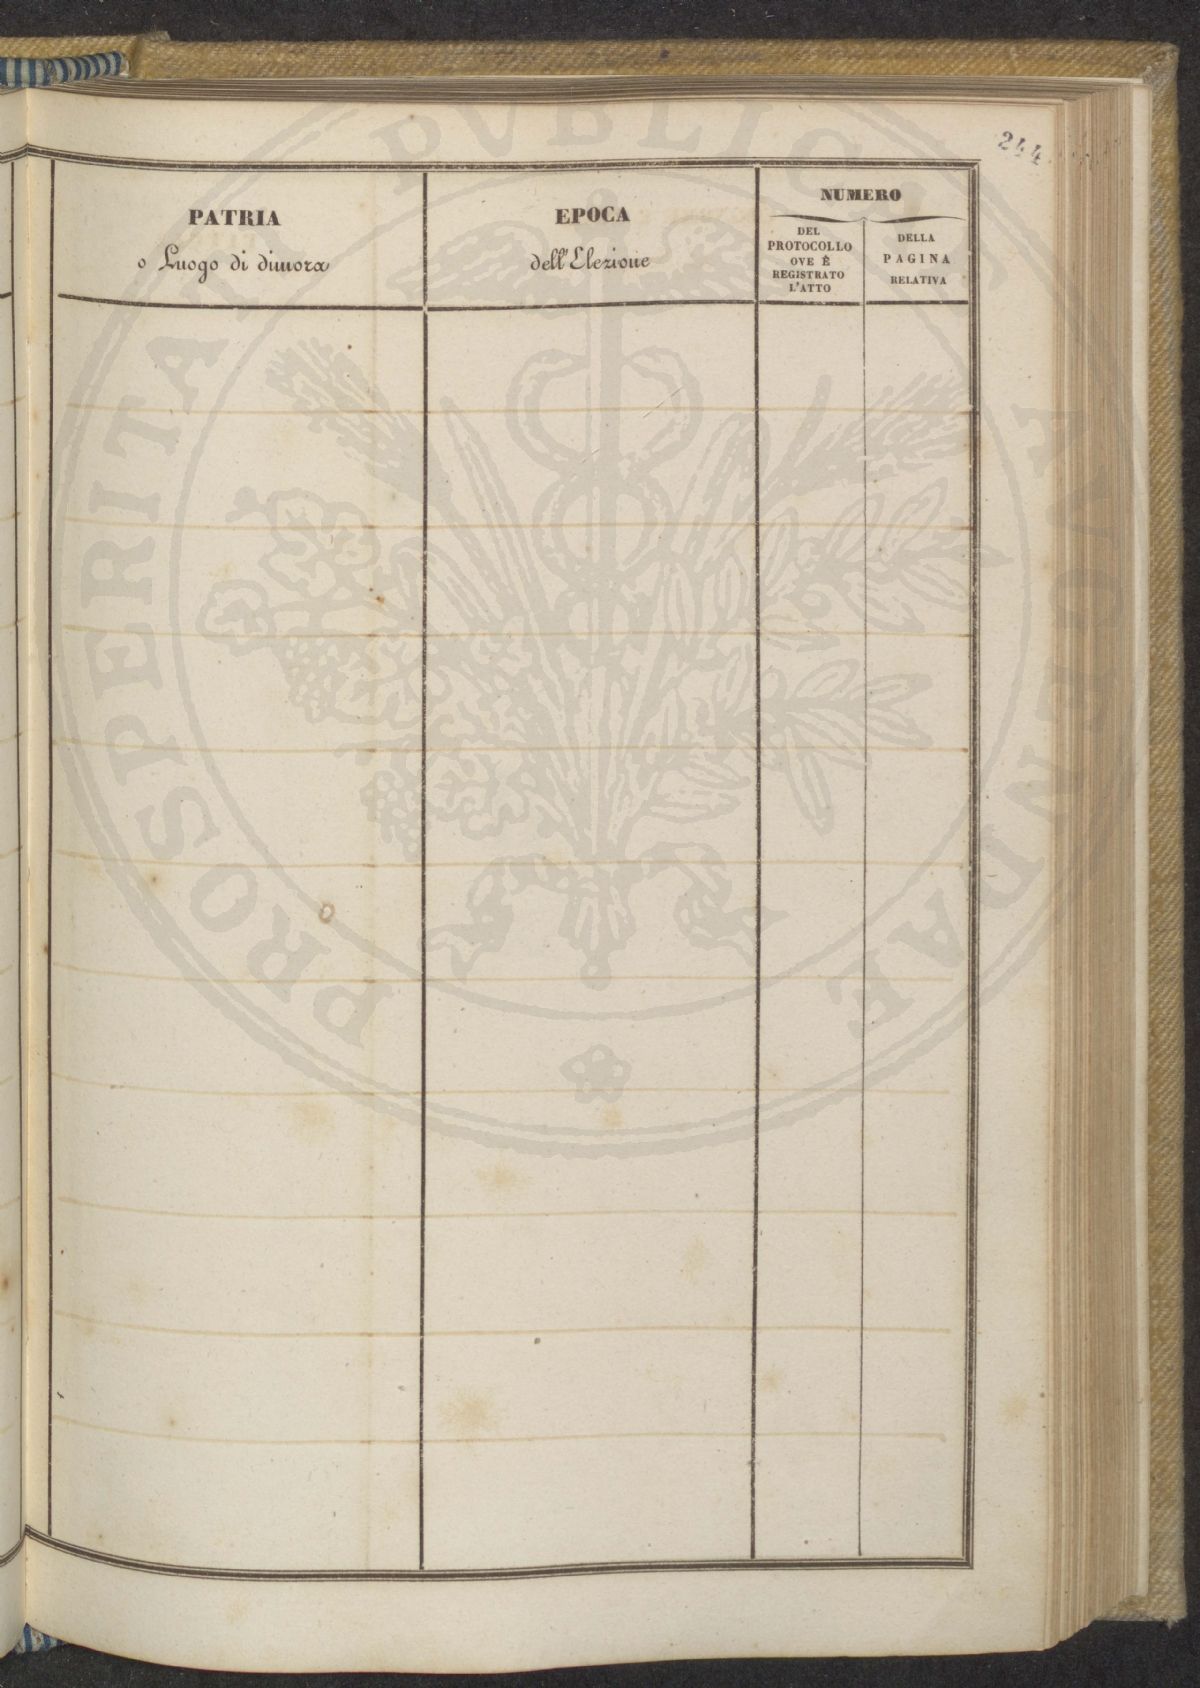 244
PATRIA
o Luogo di dimora
EPOCA
dell'Elezione
NUMERO
DEL
PROTOCOLLO
OVE È
REGISTRATO
L'ATTO
DELLA
PAGINA
RELATIVA
PROSPERITATI PVBLICAE AVGENDAE